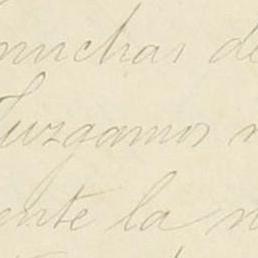 muchas de
Juzgamos n
ente la n